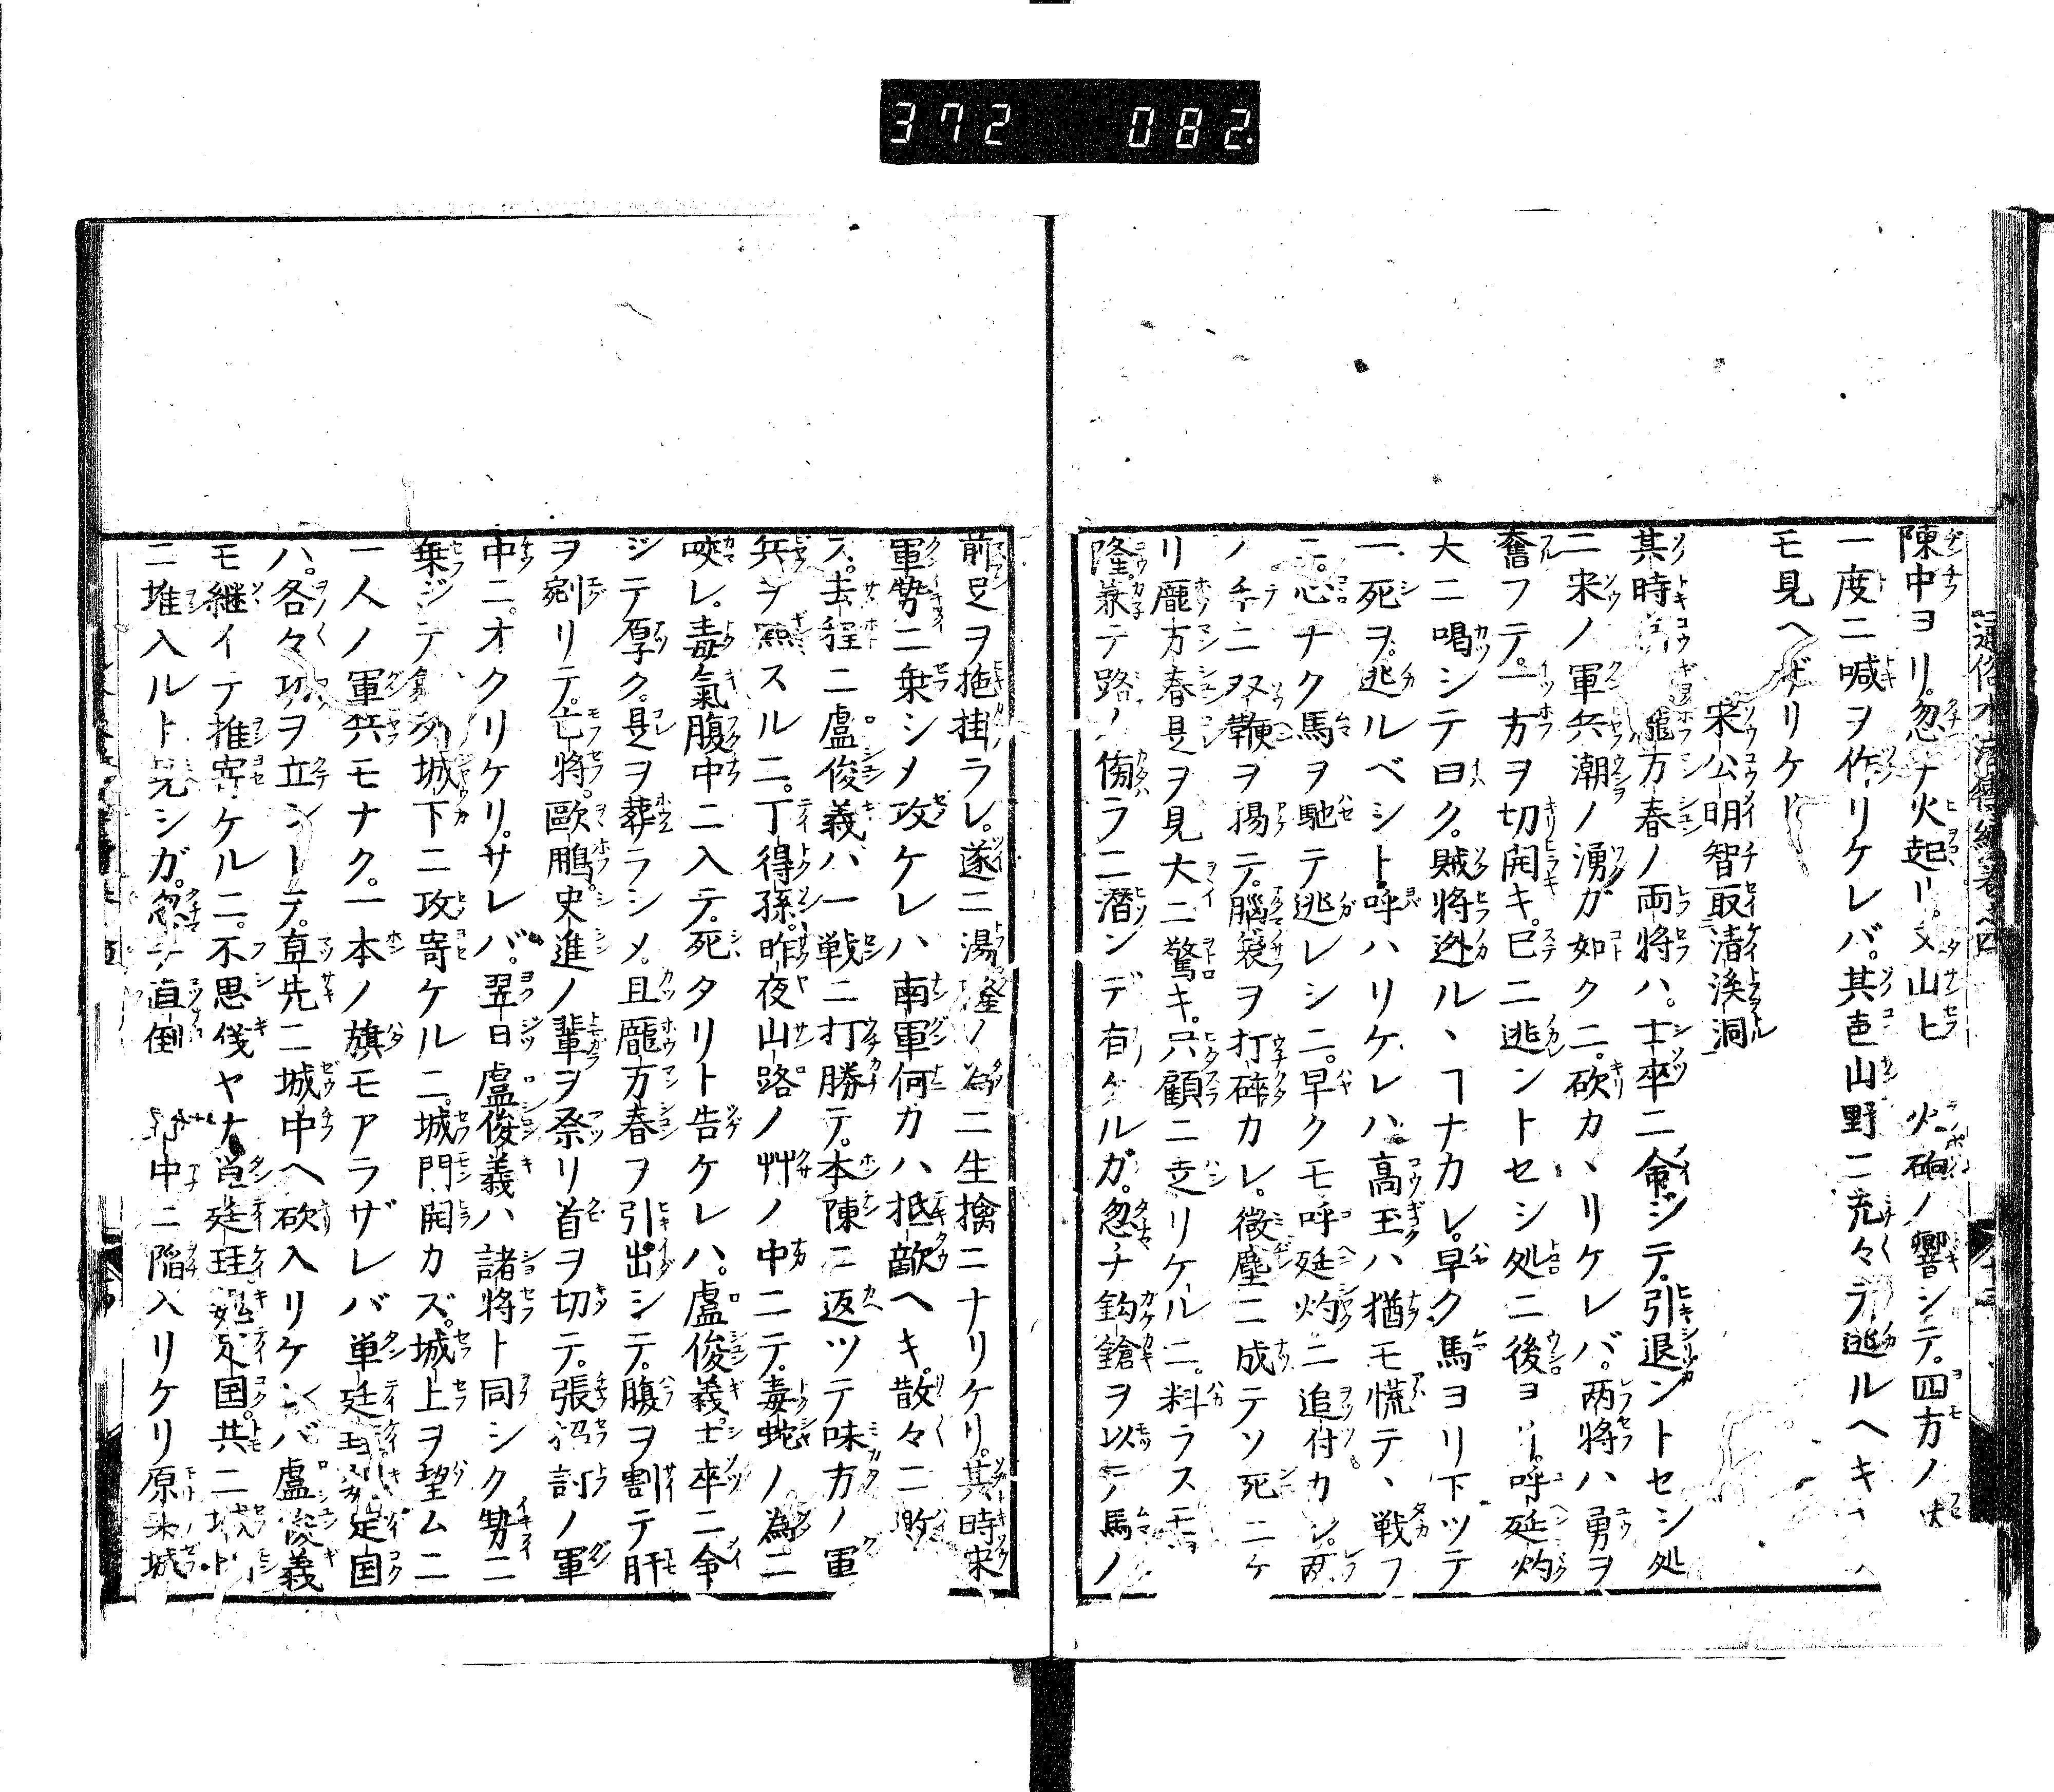 372 082.
陳中ヨリ。忽チ火起リ。又山ヒ 火砲ノ響シテ。四方ノ伏
一度ニ喊ヲ作リケレバ。其邑山野ニ充々テ逃ルヘキ
モ見ヘザリケリ
宋公明智取清溪洞
其時 龐万春ノ両将ハ。士卒ニ命ジテ。引退ントセシ処
ニ宋ノ軍兵潮ノ湧ガ如クニ。砍カヽリケレバ。両将ハ勇ヲ
奮フテ。一方ヲ切開キ。已ニ逃ントセシ処ニ後ヨリ。呼延灼
大ニ喝シテ曰ク。賊将迯ルヽヿナカレ。早ク馬ヨリ下ツテ
一死ヲ。逃ルベシト。呼ハリケレハ。高玉ハ猶モ慌テヽ戦フ
ニ。心ナク馬ヲ馳テ逃レシニ。早クモ呼延灼ニ追付カレ。両
ノ手ニ双鞭ヲ揚テ。腦袋ヲ打碎カレ。微塵ニ成テソ死ニケ
リ龐万春是ヲ見大ニ驚キ。只顧ニ走リケルニ。料ラスモ
隆。兼テ路ノ傍ラニ潜ンデ有ケルガ。忽チ鈎鎗ヲ以テ馬ノ
前足ヲ拖掛ラレ。遂ニ湯隆ノ為ニ生擒ニナリケリ。其時宋
軍勢ニ乗シメ攻ケレハ南軍何カハ抵敵ヘキ。散々ニ敗
ス。去程ニ盧俊義ハ一戦ニ打勝テ。本陳ニ返ツテ味方ノ軍
兵ヲ㸃スルニ。丁得孫。昨夜山路ノ艸ノ中ニテ。毒蛇ノ為ニ
咬レ。毒氣腹中ニ入テ。死タリト告ケレハ。盧俊義。士卒ニ命
ジテ厚ク。是ヲ葬ラシメ。且龐万春ヲ引出シテ。腹ヲ割テ肝
ヲ剜リテ。亡将。歐鵬。史進ノ輩ヲ祭リ首ヲ切テ。張招討ノ軍
中ニ。オクリケリ。サレバ。翌日盧俊義ハ諸将ト同シク勢ニ
乗ジテ歙州城下ニ攻寄ケルニ。城門開カズ。城上ヲ望ムニ
一人ノ軍兵モナク。一本ノ旗モアラザレバ単廷珪魏定国
ハ。各々功ヲ立ントテ。真先ニ城中ヘ砍入リケレバ盧俊義
モ継イテ推寄ケルニ。不思儀ヤナ單廷珪。魏定国。共ニ城門
ニ推入ルト見シガ。忽チ直倒 中ニ陷入リケリ原来城